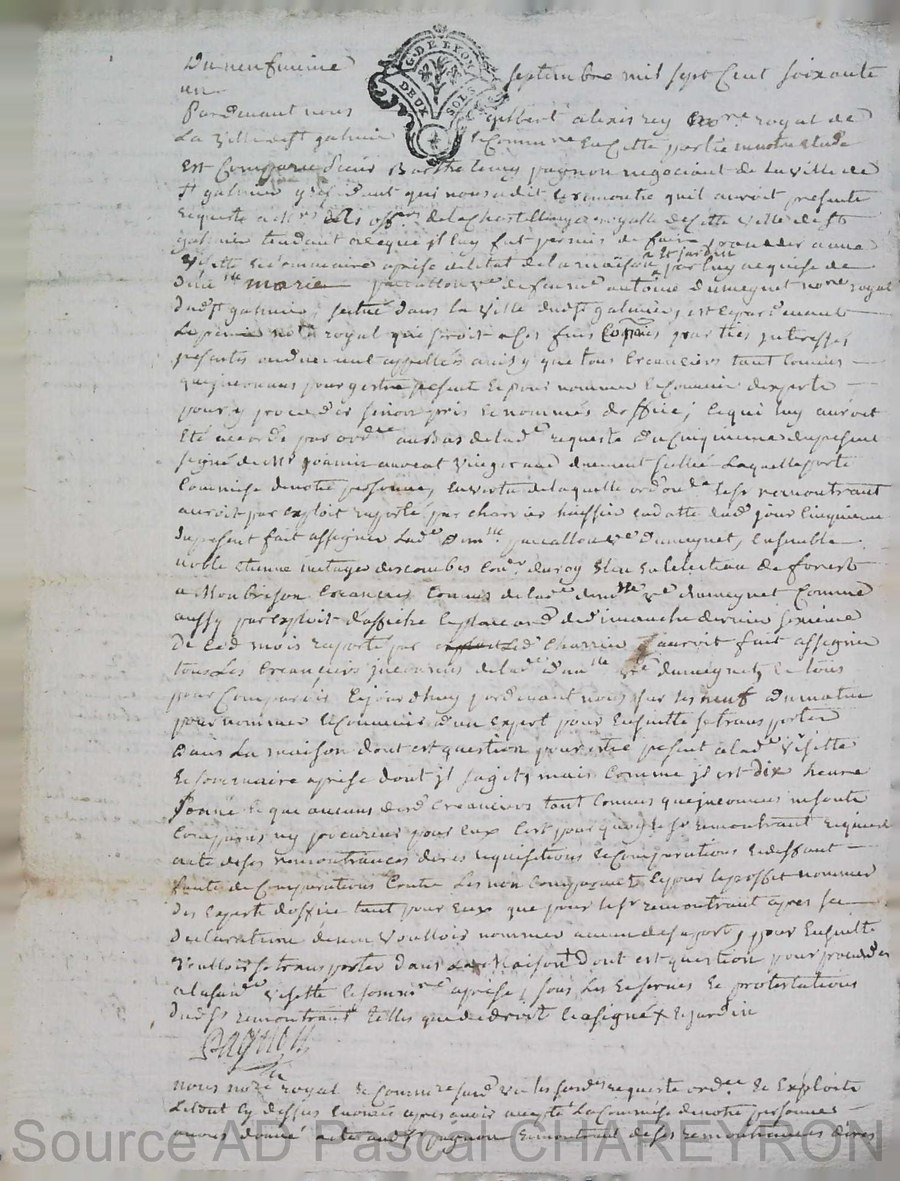 Du neufvieme septembre mil sept Cent soixante
un
G. DE LYON
DEUX SOLS
Pardevant nous gilbert alexis rey royal de
La ville de st galmier et Commre en Cette partie en notre etude
Est Comparu sieur Barthelemy pagnon negociant de la ville de
st galmier y residant qui nous a dit et remontré quil auroit presenté
requete a Mrs les offers de la Chatellenye royalle de Cette ville de st
galmier tendant a ce que il luy fut permis de faire proceder a une
visitte et sommaire aprise de letat de la maison et jardin par luy acquise de
dlle marie jacallon ve de feu me antoine dumeynet nore royal
dudt st galmier, scitué dans la ville dudt st galmier, et ce pardevant
Le premier nore royal que seroit a Ces fins Commis parties interessés
presentes ou duement appellés ainsy que tous Creanciers tant Connus
quinconnus pour y etre present et pour nommer et Convenir dexperts
pour y proceder sinon pris et nommés doffice, Ce qui luy auroit
Eté accordé par ordce au bas de lade requete du Cinquieme du present
signé de Mr avocat duement scellé Laquelle porte
Commise de notre personne, en vertu de laquelle ordonce le sr remontrant
auroit par exploit raporté par charrier huissier en datte dud jour Cinquieme
du present fait assigner lade dlle jacallon ve dumeynet, Ensemble
noble Etienne metayer descombes Coner du roy Eleu en lelection de forest
a Montbrison Creancier Connu de lade dlle ve dumeynet Comme
aussy par exploit daffiche et placard dimanche dernier sixieme
De Ce mois raporté par led Charrier il auroit fait assigner
tous Les Creanciers inconnus de lade dlle ve dumeynet, Et tous
pour Comparoir Cejourdhuy pardevant nous sur les neuf du matin
pour nommer et Convenir dun Expert pour Ensuitte se transporter
Dans La maison dont est question pour etre present a lade visitte
et sommaire aprise dont il sagit, mais Comme il est dix heure
sonné et que aucuns desd Creanciers tant Connus quinconnus ne sont
Comparus ny procureur pour Eux Cest pourquoy le sr remontrant requiert
acte de ses remontrances dires requisitions et Comparutions et deffaut
faute de Comparutions Contre Les non Comparants Et pour le proffit nommer
des Expert doffice tant pour Eux que pour le sr remontrant apres sa
Declaration de nen Voulloir nommer aucun de sa part, pour Ensuitte
Voulloir se transporter dans La Maison dont est question pour proceder
a lad visitte et sommre aprise, sous Les Reserves et protestations
dudt sr remontrant telles que de droit et a signé x et jardin
Pagnon
nous nore royal et Commre susd vu les susdes requete ordce et Exploits
Letout Cy dessus enoncé apres avoir accepté La Commise de notre personne
avons donné acte audt sr pagnon remontrant de ses remontrances dires
Source AD Pascal CHAREYRON